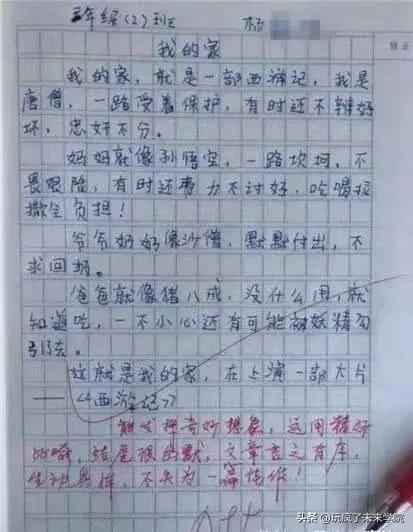 三年级(2)班 杨
我的家
我的家，就是一部西游记，我是
唐僧，一路受着保护，有时还不辨好
坏，忠奸不分。
妈妈就像孙悟空，一路坎坷，不
畏艰险，有时还费力不讨好，吃喝拉
撒全负担！
爷爷奶奶像沙僧，默默付出，不
求回报。
爸爸就像猪八戒，没什么用，就
知道吃，一不小心还有可能被妖精勾
引去。
这就是我的家，在上演一部大片
——《西游记》
能发挥奇妙想象，运用精妙
比喻，结尾很幽默，文章言之有序，
生动具体，不失为一篇佳作！
头条 @玩疯了未来学院